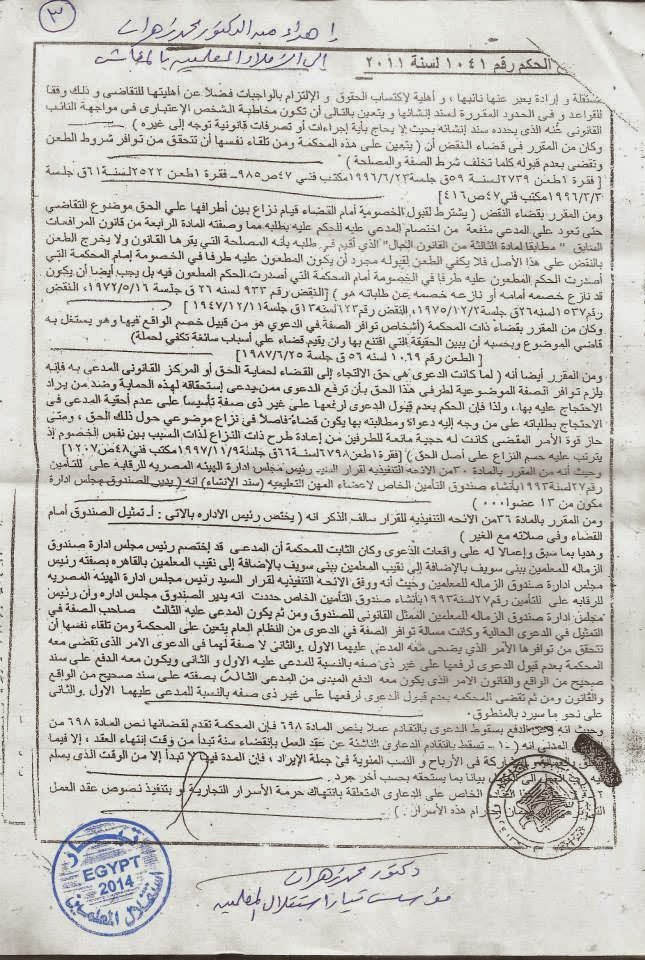 ٣
إهداء من الدكتور محمد زهران
إلى الزملاء المعلمين بالمعاش
الحكم رقم ١٠٤١ لسنة ٢٠١١
مستقلة و إرادة يعبر عنها نائبها ، و أهلية لإكتساب الحقوق و الإلتزام بالواجبات فضلاً عن أهليتها للتقاضي وذلك وفقا
للقواعد و في الحدود المقررة لسند إنشائها و يتعين بالتالي أن تكون مخاطبة الشخص الإعتبارى فى مواجهة النائب
القانوني عنه الذى يحدده سند إنشائه بحيث لا يحاج بأية إجراءات أو تصرفات قانونية توجه إلى غيره )
وكان من المقرر فى قضاء النقض أن ( يتعين على هذه المحكمة ومن تلقاء نفسها أن تتحقق من توافر شروط الطعن
وتقضى بعدم قبوله كلما تخلف شرط الصفة والمصلحة )
[ فقرة ١ طعن ٢٧٣٩ لسنة ٥٩ ق جلسة ١٩٩٦/٦/٢٣ مكتب فني ٤٧ ص ٩٨٥ - فقرة ١ طعن ٢٥٢٢ لسنة ٦١ ق جلسة
١٩٩٦/٣/٣ مكتب فني ٤٧ ص ٤١٦ ]
ومن المقرر بقضاء النقض ( يشترط لقبول الخصومة أمام القضاء قيام نزاع بين أطرافها علي الحق موضوع التقاضي
حتى تعود علي المدعي منفعة من اختصام المدعي عليه للحكم عليه بطلبه مما وصفته المادة الرابعة من قانون المرافعات
السابق " مطابقا لمادة الثالثة من القانون الحال" الذي أقيم في طلبه بأنه المصلحة التي يقرها القانون ولا يخرج الطعن
بالنقض علي هذا الأصل فلا يكفي الطعن لقبوله مجرد أن يكون المطعون عليه طرفا في الخصومة إمام المحكمة التي
أصدرت الحكم المطعون عليه طرفا في الخصومة أمام المحكمة التي أصدرت الحكم المطعون فيه بل يجب أيضا أن يكون
قد نازع خصمه أمامه أو نازعه خصمه عن طلباته هو ) [ النقض رقم ٩٣٣ لسنه ٢٦ ق جلسة ١٩٧٢/٥/١٦، النقض
رقم ١٥٣٧ لسنه ٢٦ ق جلسة ١٩٧٥/١٢/٢، النقض رقم ١٢٣ لسنه ١٣ ق جلسة ١٩٤٧/١٢/١١ ]
وكان من المقرر بقضاء ذات المحكمة (أشخاص توافر الصفة في الدعوي هو من قبيل خصم الواقع فيها وهو يستقل به
قاضي الموضوع وبحسبه أن يبين الحقيقة التي اقتنع بها وان يقيم قضاء علي أسباب سائغة تكفي لحملة)
[ الطعن رقم ١٠٦٩ لسنه ٥٦ ق جلسة ١٩٨٧/٦/٢٥ ]
ومن المقرر أيضا أنه ( لما كانت الدعوى هى حق الالتجاء إلى القضاء لحماية الحق أو المركز القانونى المدعى به فإنه
يلزم توافر الصفة الموضوعية لطرفى هذا الحق بأن ترفع الدعوى ممن يدعى إستحقاقه لهذه الحماية وضد من يراد
الاحتجاج عليه بها ، ولذا فإن الحكم بعدم قبول الدعوى لرفعها على غير ذى صفة تأسيساً على عدم أحقية المدعى فى
الاحتجاج بطلباته على من وجه إليه دعواة ومطالبته بها يكون قضاءً فاصلاً فى نزاع موضوعي حول ذلك الحق ، ومتى
حاز قوة الأمر المقضى كانت له حجية مانعة للطرفين من إعادة طرح ذات النزاع لذات السبب بين نفس الخصوم إذ
يترتب عليه حسم النزاع على أصل الحق ) [ فقرة ١ طعن ٦٧٩٨ لسنة ٦٦ ق جلسة ١٩٩٧/١١/٩ مكتب فني ٤٨ ص ١٢٠٧ ]
وحيث أنه من المقرر بالمادة ٣٠ من الائحه التنفيذيه لقرار السيد رئيس مجلس ادارة الهيئه المصريه للرقابه على للتأمين
رقم ٢٧ لسنه ١٩٩٣ بأنشاء صندوق التأمين الخاص لاعضاء المهن التعليميه (سند الإنشاء) انه ( يدير الصندوق مجلس ادارة
مكون من ١٣ عضوا ٠٠٠ )
ومن المقرر بالمادة ٣٦ من الائحه التنفيذيه للقرار سالف الذكر انه ( يختص رئيس الاداره بالاتى : أ- تمثيل الصندوق أمام
القضاء وفى صلاته مع الغير )
وهديا بما سبق وإعمالا له على واقعات الدعوى وكان الثابت للمحكمة أن المدعى قد إختصم رئيس مجلس ادارة صندوق
الزماله للمعلمين ببنى سويف بالإضافة إلى نقيب المعلمين ببنى سويف بالإضافة إلى نقيب المعلمين بالقاهره بصفته رئيس
مجلس ادارة صندوق الزماله للمعلمين وحيث أنه ووفق الائحه التنفيذيه لقرار السيد رئيس مجلس ادارة الهيئه المصريه
للرقابه على للتأمين رقم ٢٧ لسنه ١٩٩٣ بأنشاء صندوق التأمين الخاص حددت انه يدير الصندوق مجلس اداره وأن رئيس
مجلس ادارة صندوق الزماله للمعلمين الممثل القانونى للصندوق ومن ثم يكون المدعى عليه الثالث صاحب الصفة في
التمثيل في الدعوى الحالية وكانت مسالة توافر الصفة فى الدعوى من النظام العام يتعين على المحكمة ومن تلقاء نفسها أن
تتحقق من توافرها الأمر الذي يضحى معه المدعى عليهما الاول والثانى لا صفة لهما فى الدعوى الامر الذى تقضى معه
المحكمة بعدم قبول الدعوى لرفعها على غير ذى صفه بالنسبة للمدعى عليه الاول و الثانى ويكون معه الدفع على سند
صحيح من الواقع والقانون الامر الذى يكون معه الدفع المبدى من المدعى الثالث بصفته على سند صحيح من الواقع
والقانون ومن ثم تقضى المحكمه بعدم قبول الدعوى لرفعها على غير ذى صفه بالنسبة للمدعى عليهما الاول والثانى
على نحو ما سيرد بالمنطوق.
وحيث انه وعن الدفع بسقوط الدعوى بالتقادم عملا بنص المادة ٦٩٨ فإن المحكمة تقدم لقضائها نص المادة ٦٩٨ من
المدنى انه ( ١٠ - تسقط بالتقادم الدعاوى الناشئة عن عقد العمل بإنقضاء سنة تبدأ من وقت إنتهاء العقد ، إلا فيما
والمشاركة فى الأرباح و النسب المئوية فى جملة الإيراد ، فإن المدة فيها لا تبدأ إلا من الوقت الذى يسلم
بيانا بما يستحقه بحسب آخر جرد .
٢ الخاص على الدعاوى المتعلقة بانتهاك حرمة الأسرار التجارية أو بتنفيذ نصوص عقد العمل
إحترام هذه الأسرار . )
تيار
EGYPT
2014
استقلال المعلمين
دكتور محمد زهران
مؤسس تيار استقلال المعلمين